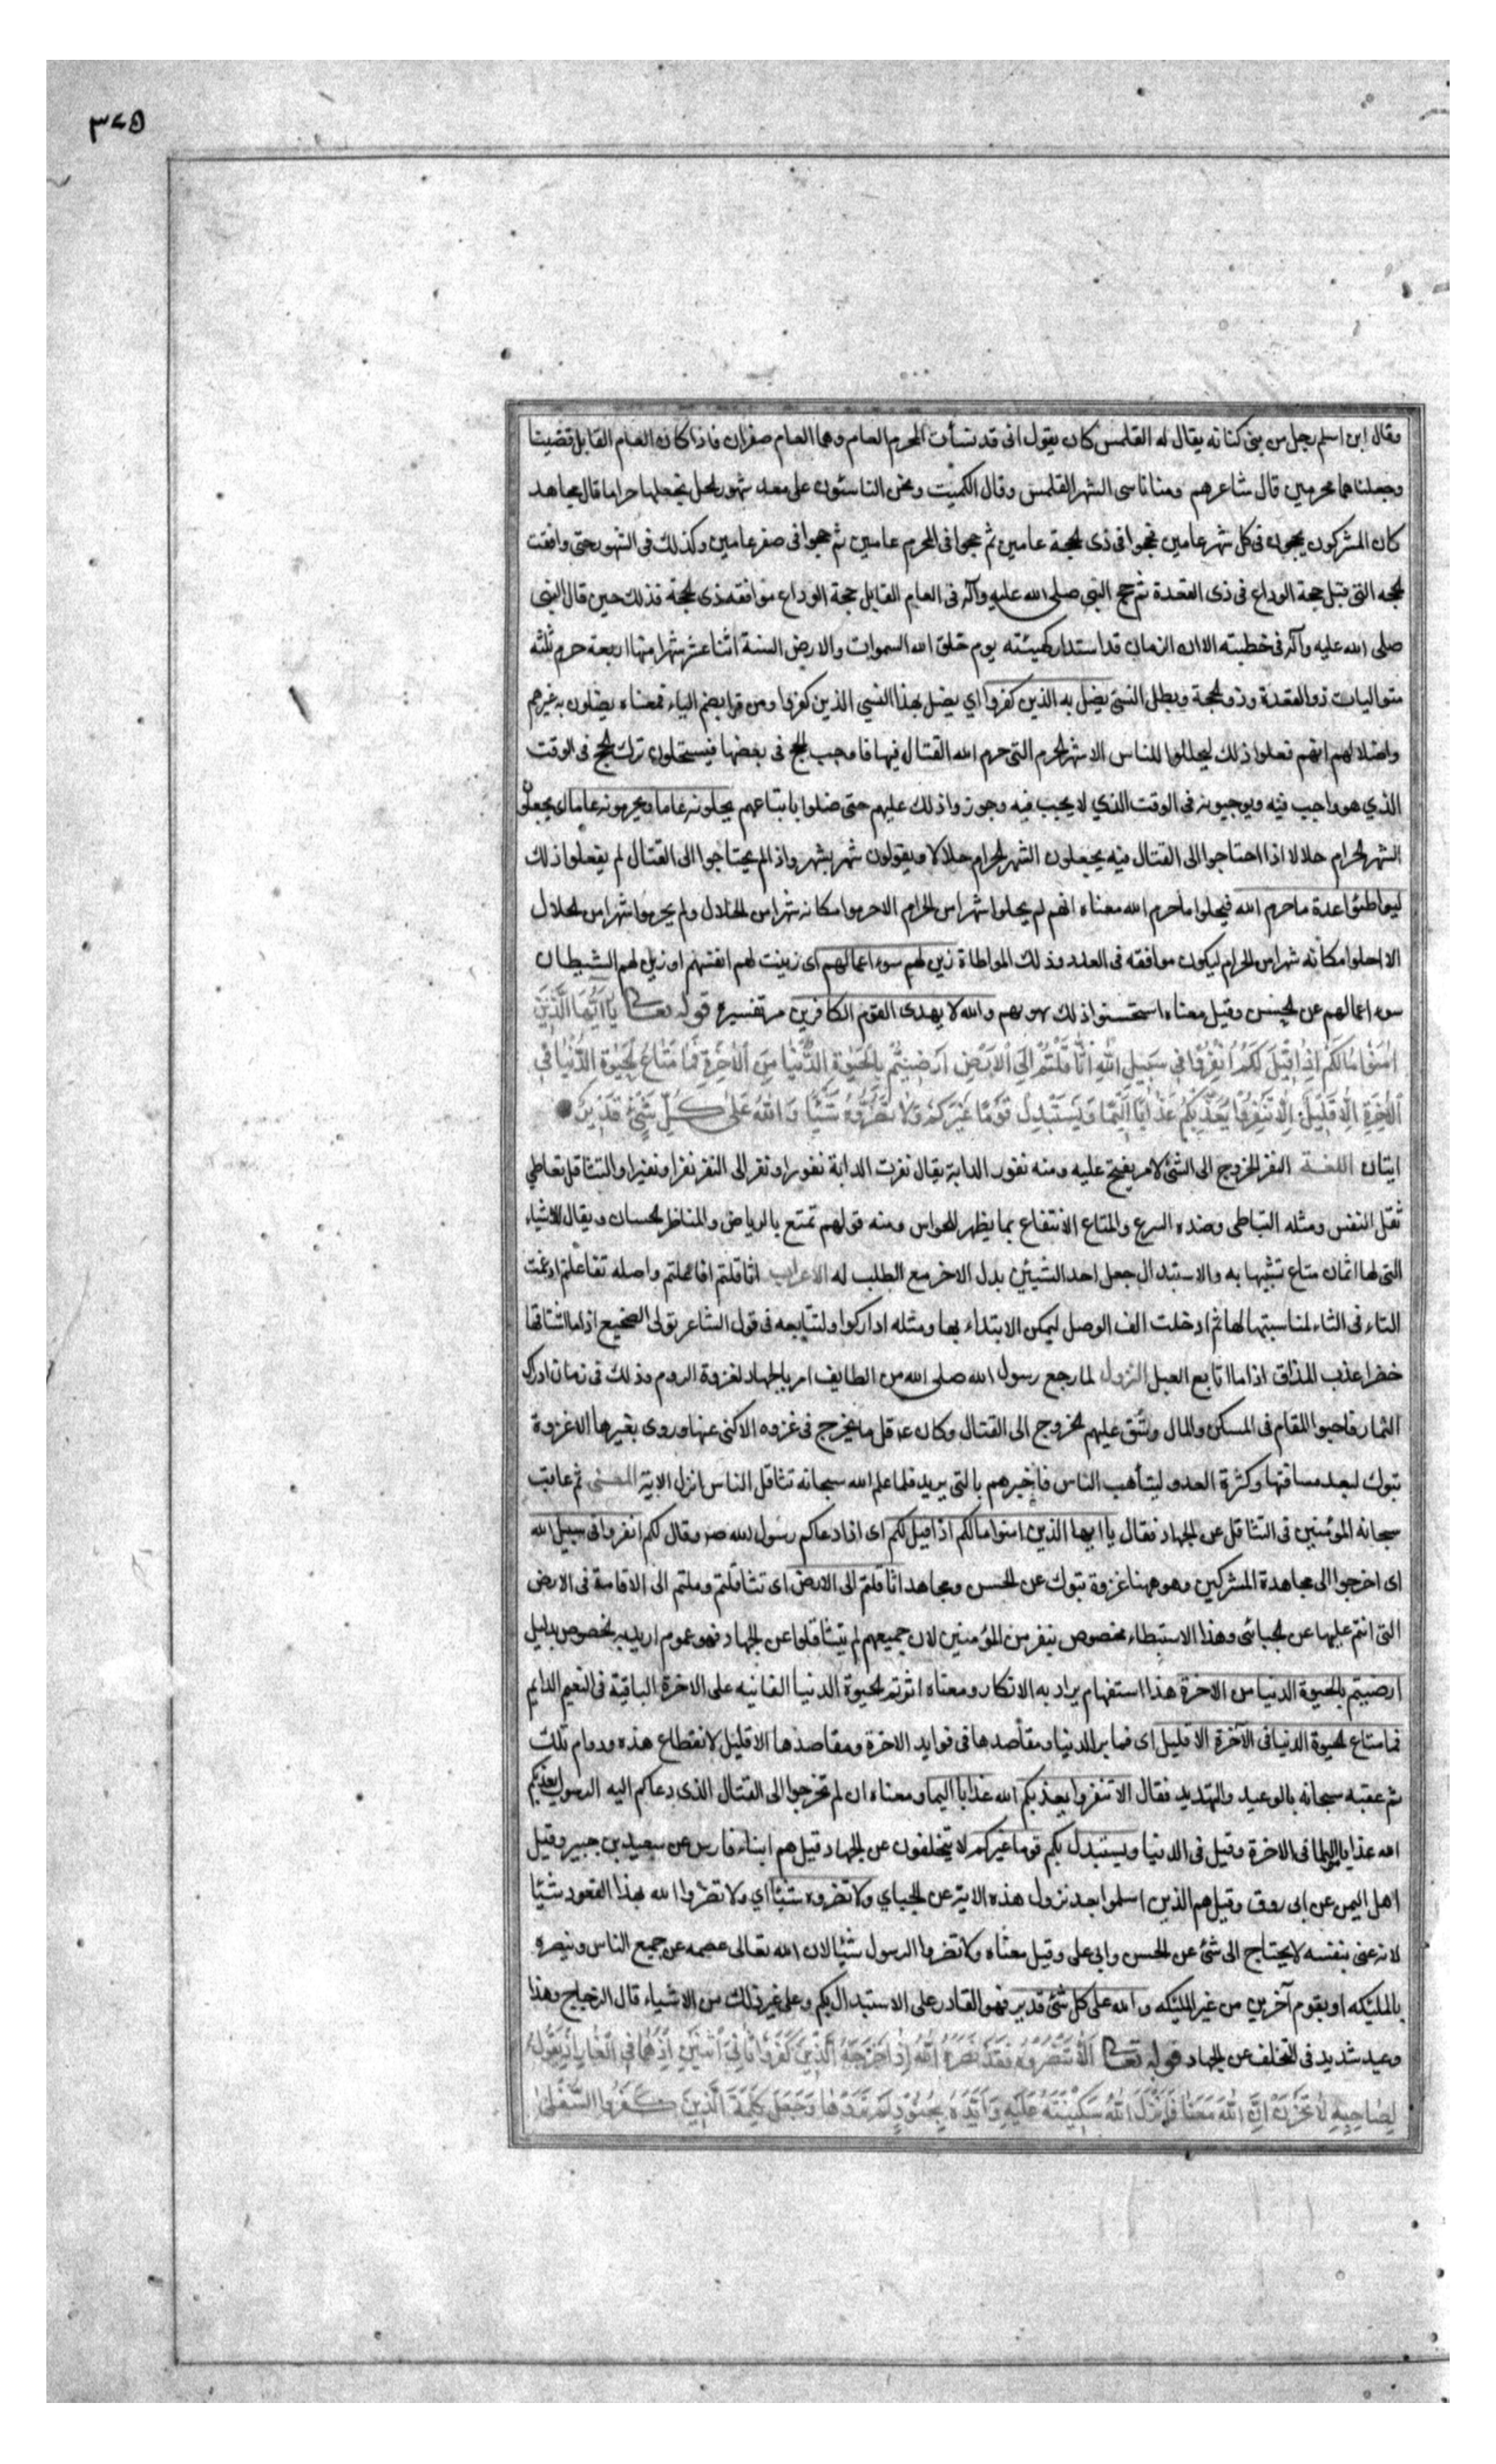 ٣٤٥
وقال ابن اسلم رجل من بنى كنانه يقال له القلمس كان يقول انى قد نسأت المحرم العام وهما العام صفران فاذا كان العام القابل قضينا
وجعلناهما محرمين قال شاعرهم ومنا ناسى الشهر القلمس وقال الكميت ونحن الناسئون على معد شهور الحل نجعلها حراما قال مجاهد
كان المشركون يحجون فى كل شهر عامين فحجوا فى ذى الحجة عامين ثم حجوا فى المحرم عامين ثم حجوا فى صفر عامين وكذلك فى الشهور حتى وافقت
الحجه التى قبل حجة الوداع فى ذى القعدة ثم حج النبى صلى الله عليه وآله فى العام القابل حجة الوداع فوافقه ذى الحجة فذلك حين قال النبى
صلى الله عليه وآله فى خطبته الا ان الزمان قد استدار كهيئته يوم خلق الله السموات والارض السنة اثنا عشر شهرا منها اربعة حرم ثلثه
متواليات ذوالقعدة وذوالحجة وبطل النسئ يضل به الذين كفروا اي يضل بهذا النسئ الذين كفروا ومن قرا بضم الياء فمعناه يضلون به غيرهم
واضلالهم انهم فعلوا ذلك ليحللوا للناس الاشهر الحرم التى حرم الله القتال فيها فاوجب الحج فى بعضها فيستحلون ترك الحج فى الوقت
الذي هو واجب فيه ويوجبونه فى الوقت الذي لا يجب فيه وجوزوا ذلك عليهم حتى ضلوا باتباعهم يحلونه عاما ويحرمونه عاما اى يجعلون
الشهر الحرام حلالا اذا احتاجوا الى القتال فيه يجعلون الشهر الحرام حلالا ويقولون شهر بشهر واذا لم يحتاجوا الى القتال لم يفعلوا ذلك
ليواطئوا عدة ما حرم الله فيحلوا ما حرم الله معناه انهم لم يحلوا شهرا من الحرام الا حرموا مكانه شهرا من الحلال ولم يحرموا شهرا من الحلال
الا احلوا مكانه شهرا من الحرام ليكون موافقه فى العدد وذلك المواطاة زين لهم سوء اعمالهم اى زينت لهم انفسهم او زين لهم الشيطان
سوء اعمالهم عن الحسن وقيل معناه استحسنوا ذلك بهوىهم والله لا يهدى القوم الكافرين مر تفسيره قوله تعالى يَا أَيُّهَا الَّذِينَ
امَنُوا مَا لَكُمْ إِذَا قِيلَ لَكُمُ انْفِرُوا فِي سَبِيلِ اللّٰهِ اثَّاقَلْتُمْ إِلَى الْأَرْضِ أَرَضِيتُمْ بِالْحَيٰوةِ الدُّنْيَا مِنَ الْآخِرَةِ فَمَا مَتَاعُ الْحَيٰوةِ الدُّنْيَا فِي
الْآخِرَةِ إِلَّا قَلِيلٌ إِلَّا تَنْفِرُوا يُعَذِّبْكُمْ عَذَابًا أَلِيمًا وَيَسْتَبْدِلْ قَوْمًا غَيْرَكُمْ وَلَا تَضُرُّوهُ شَيْئًا وَاللّٰهُ عَلٰى كُلِّ شَيْءٍ قَدِيرٌ
ايتان اللغة النفر الخروج الى الشئ لامر يهيج عليه ومنه نفور الدابة يقال نفرت الدابة نفورا ونفر الى الثغر نفرا ونفيرا والتثاقل تعاطي
ثقل النفس ومثله التباطى وضده السرع والمتاع الانتفاع بما يظهر للحواس ومنه قولهم تمتع بالرياض والمناظر الحسان ويقال للاشياء
التى لها اثمان متاع تشبيها به والاستبدال جعل احد الشيئين بدل الاخر مع الطلب له الاعراب اثاقلتم افاعلتم واصله تفاعلتم ادغمت
التاء فى الثاء لمناسبتها لها ثم ادخلت الف الوصل ليمكن الابتداء بها ومثله اداركوا ولتتابعه فى قول الشاعر تولى الضجيع اذا ما اشتاقها
خضرا عذب المذاق اذا ما اتابع القبل النزول لما رجع رسول الله صلى الله من الطايف امر بالجهاد لغزوة الروم وذلك فى زمان ادراك
الثمار فاحبوا المقام فى المسكن والمال وشق عليهم الخروج الى القتال وكان عم قل ما يخرج فى غزوه الا كنى عنها وروى بغيرها الا غزوة
تبوك لبعد مسافتها وكثرة العدو ليتأهب الناس فاخبرهم بالتى يريد فلما علم الله سبحانه تثاقل الناس انزل الاية المعنى ثم عاتب
سبحانه المؤمنين فى التثاقل عن الجهاد فقال يا ايها الذين امنوا مالكم اذا قيل لكم اى اذا دعاكم رسول الله ص وقال لكم انفروا فى سبيل الله
اى اخرجوا الى مجاهدة المشركين وهو ههنا غزوة تبوك عن الحسن ومجاهد اثاقلتم الى الارض اى تثاقلتم وملتم الى الاقامة فى الارض
التى انتم عليها عن الجبائى وهذا الاستبطاء مخصوص بنفر من المؤمنين لان جميعهم لم يتثاقلوا عن الجهاد فهو عموم اريد به الخصوص بدليل
ارضيتم بالحيوة الدنيا من الاخرة هذا استفهام يراد به الانكار ومعناه اثرتم الحيوة الدنيا الفانيه على الاخرة الباقية فى النعيم الدايم
فما متاع الحيوة الدنيا فى الآخرة الا قليل اى فما برالدنيا ومقاصدها فى فوايد الاخرة ومقاصدها الا قليل لانقطاع هذه ودوام تلك
ثم عقبه سبحانه بالوعيد والتهديد فقال الا تنفروا يعذبكم الله عذابا اليما ومعناه ان لم تخرجوا الى القتال الذى دعاكم اليه الرسول يعذبكم
الله عذابا اليما فى الاخرة وقيل فى الدنيا ويستبدل بكم قوما غيركم لا يتخلفون عن الجهاد قيل هم ابناء فارس عن سعيد بن جبير وقيل
اهل اليمن عن ابى روق وقيل هم الذين اسلموا بعد نزول هذه الاية عن الجباي ولا تضروه شيئا اي ولا تضروا الله بهذا القعود شيئا
لانه غنى بنفسه لا يحتاج الى شئ عن الحسن وابى على وقيل معناه ولا تضروا الرسول شيئا لان الله تعالى عصمه عن جميع الناس وينصره
بالمليكه او بقوم آخرين من غير المليكه والله على كل شئ قدير فهو القادر على الاستبدال بكم وعلى غير ذلك من الاشياء قال الزجاج وهذا
وعيد شديد فى التخلف عن الجهاد قوله تعالى إِلَّا تَنْصُرُوهُ فَقَدْ نَصَرَهُ اللّٰهُ إِذْ أَخْرَجَهُ الَّذِينَ كَفَرُوا ثَانِيَ اثْنَيْنِ إِذْ هُمَا فِي الْغَارِ إِذْ يَقُولُ
لِصَاحِبِهِ لَا تَحْزَنْ إِنَّ اللّٰهَ مَعَنَا فَأَنْزَلَ اللّٰهُ سَكِينَتَهُ عَلَيْهِ وَأَيَّدَهُ بِجُنُودٍ لَمْ تَرَوْهَا وَجَعَلَ كَلِمَةَ الَّذِينَ كَفَرُوا السُّفْلٰى